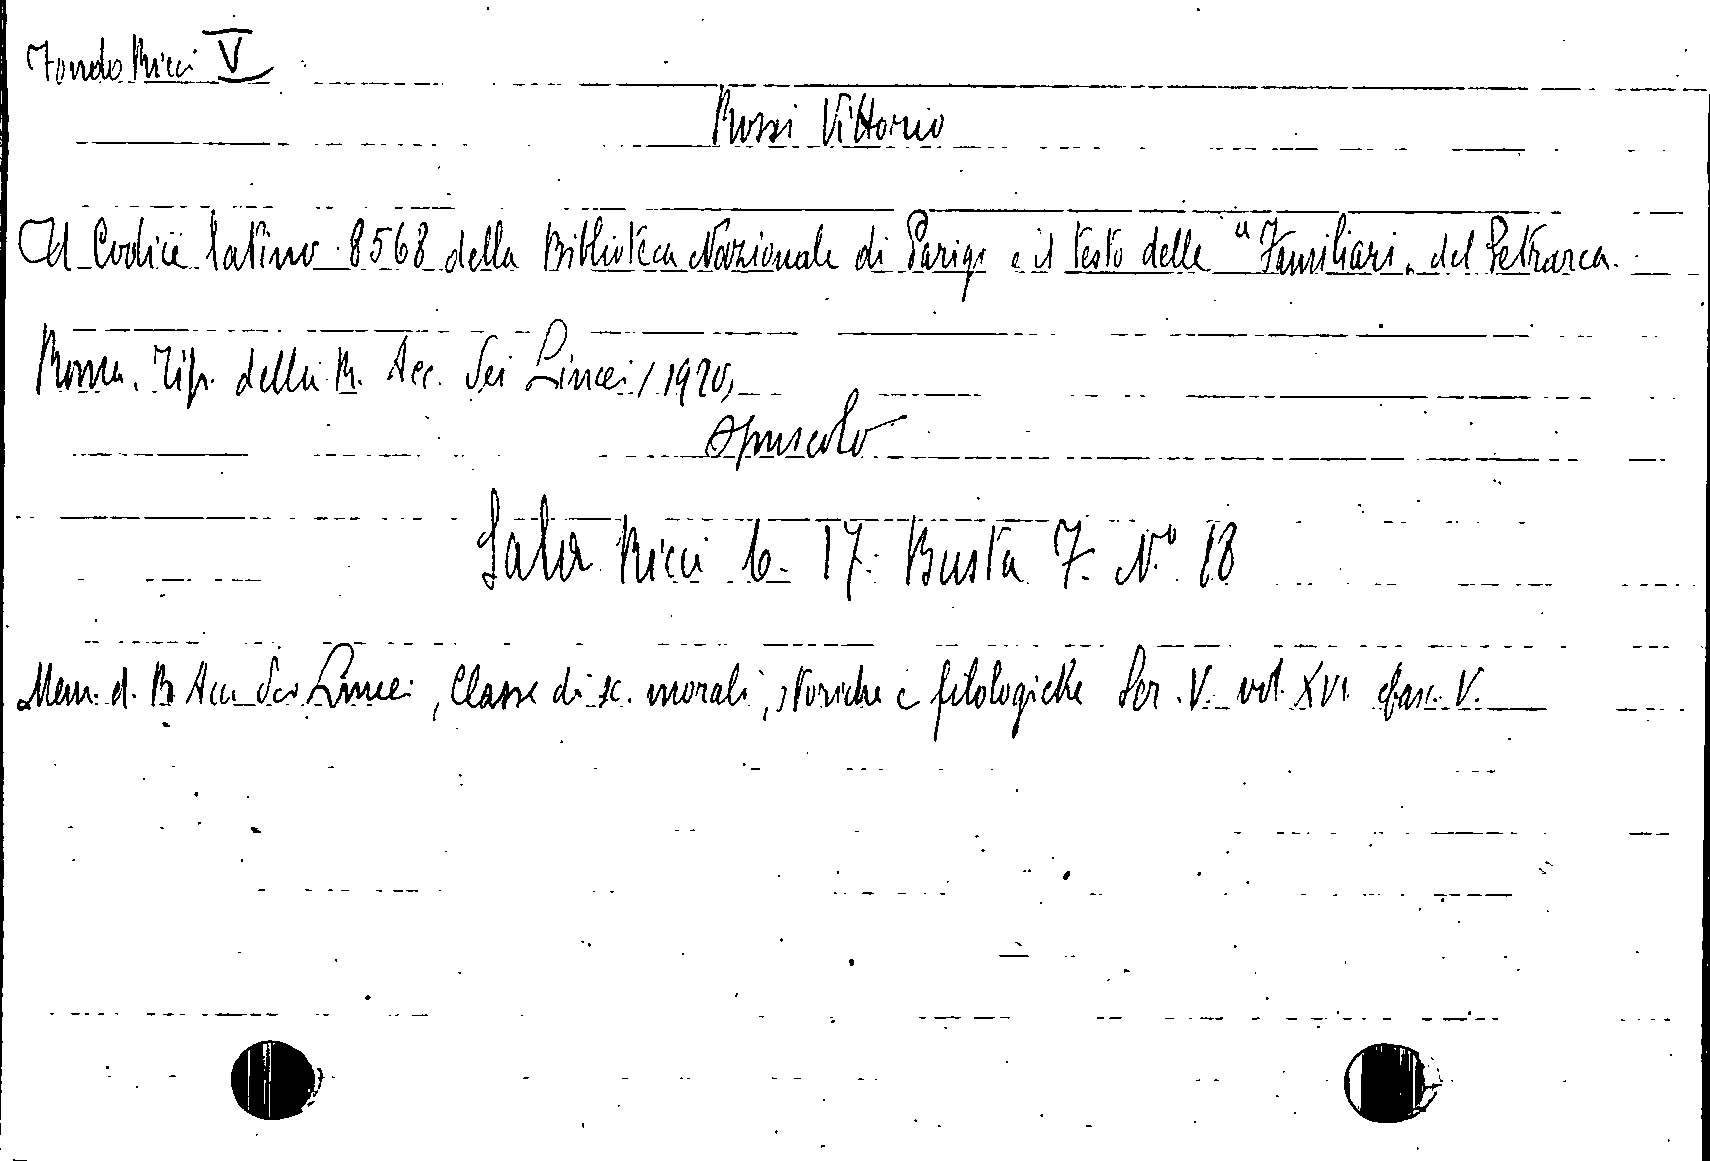 Fondo Ricci V
Rossi Vittorio
Il Codice latino 8568 della Biblioteca Nazionale di Parigi e il testo delle "Familiari" del Petrarca.
Roma. Tip. della R. Acc. dei Lincei, 1920,
opuscolo
Sala Ricci 6. 17. Busta 7. N.° 18
Mem. d. R. Acc. dei Lincei, Classe di sc. morali, storiche e filologiche Ser. V. vol. XVI fasc. V.